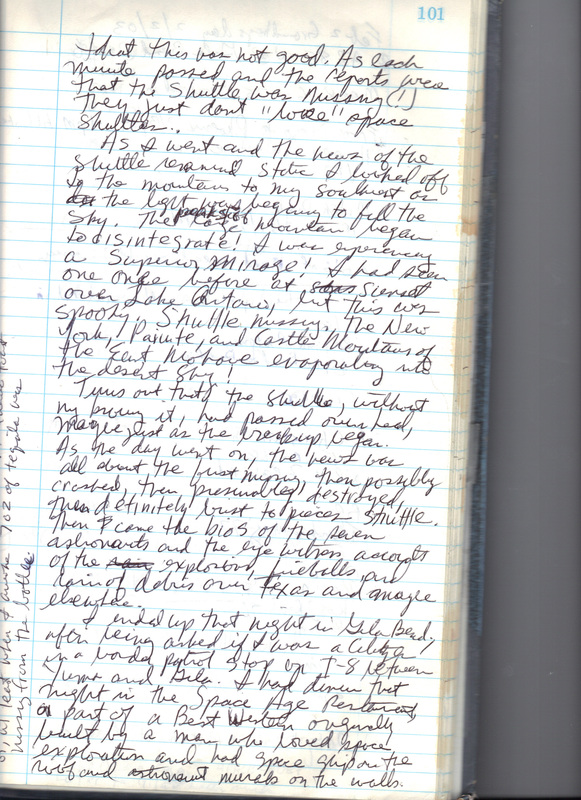 101
that this was not good. As each
minute passed and the reports were
that the Shuttle was missing (!)
They just don't "lose" space
shuttles..
As I went and the news of the
shuttle remained static I looked off
to the mountains to my southwest as
the light was beginning to fill the
sky. The peaks of mountain began
to disintegrate! I was experiencing
a Superior Mirage! I had seen
one once before at sunset
over Lake Ontario, but this was
spooky. Shuttle missing, the New
York, Paiute, and Castle Mountains of
the East Mohave evaporating into
the desert sky!
Turns out that the shuttle, without
my knowing it, had passed overhead,
maybe just as the breakup began.
As the day went on, the news was
all about the first missing, then possibly
crashed, then presumably destroyed,
then definitely bust to pieces shuttle.
Then came the bios of the seven
astronauts and the eye witness accounts
of the explosion, fireballs and
rain of debris over Texas and maybe
elsewhere.
I ended up that night in Gila Bend,
after being asked if I was a citizen
in a border patrol stop on I-8 between
Yuma and Gila. I had dinner that
night in the Space Age Restaurant,
a part of a Best Western originally
built by a man who loved space
exploration and had space ship on the
roof and astronaut murals on the walls.
702 of tequila was
missing from the bottle